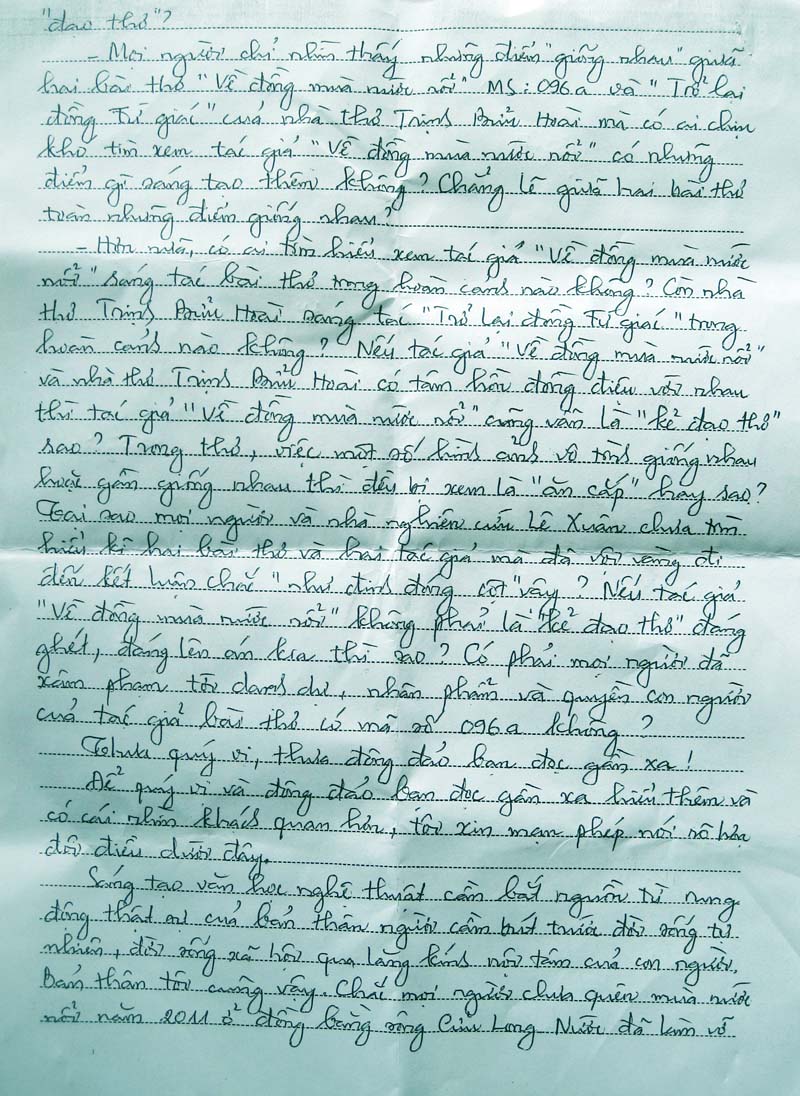 "đạo thơ"?
- Mọi người chỉ nhìn thấy những điểm "giống nhau" giữa
hai bài thơ "Về đồng mùa nước nổi" MS: 096.a và "Trở lại
đồng Tứ giác" của nhà thơ Trịnh Bửu Hoài mà có ai chịu
khó tìm xem tác giả "Về đồng mùa nước nổi" có những
điểm gì sáng tạo thêm không? Chẳng lẽ giữa hai bài thơ
toàn những điểm giống nhau?
- Hơn nữa, có ai tìm hiểu xem tác giả "Về đồng mùa nước
nổi" sáng tác bài thơ trong hoàn cảnh nào không? Còn nhà
thơ Trịnh Bửu Hoài sáng tác "Trở lại đồng Tứ giác" trong
hoàn cảnh nào không? Nếu tác giả "Về đồng mùa nước nổi"
và nhà thơ Trịnh Bửu Hoài có tâm hồn đồng điệu với nhau
thì tác giả "Về đồng mùa nước nổi" cũng vẫn là "kẻ đạo thơ"
sao? Trong thơ, việc một số hình ảnh vô tình giống nhau
hoặc gần giống nhau thì đều bị xem là "ăn cắp" hay sao?
Tại sao mọi người và nhà nghiên cứu Lê Xuân chưa tìm
hiểu kĩ hai bài thơ và hai tác giả mà đã vội vàng đi
đến kết luận chắc "như đinh đóng cột" vậy? Nếu tác giả
"Về đồng mùa nước nổi" không phải là "kẻ đạo thơ" đáng
ghét, đáng lên án kia thì sao? Có phải mọi người đã
xâm phạm tới danh dự, nhân phẩm và quyền con người
của tác giả bài thơ có mã số 096.a không?
Thưa quý vị, thưa đông đảo bạn đọc gần xa!
Để quý vị và đông đảo bạn đọc gần xa hiểu thêm và
có cái nhìn khách quan hơn, tôi xin mạn phép nói rõ hơn
đôi điều dưới đây.
Sáng tạo văn học nghệ thuật cần bắt nguồn từ rung
động thật sự của bản thân người cầm bút trước đời sống tự
nhiên, đời sống xã hội qua lăng kính nội tâm của con người.
Bản thân tôi cũng vậy. Chắc mọi người chưa quên mùa nước
nổi năm 2011 ở đồng bằng sông Cửu Long. Nước đã làm vỡ